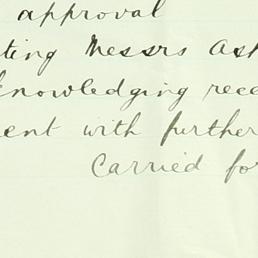 approval
ting Messrs Ash
knowledging rece
ent with further
Carried for